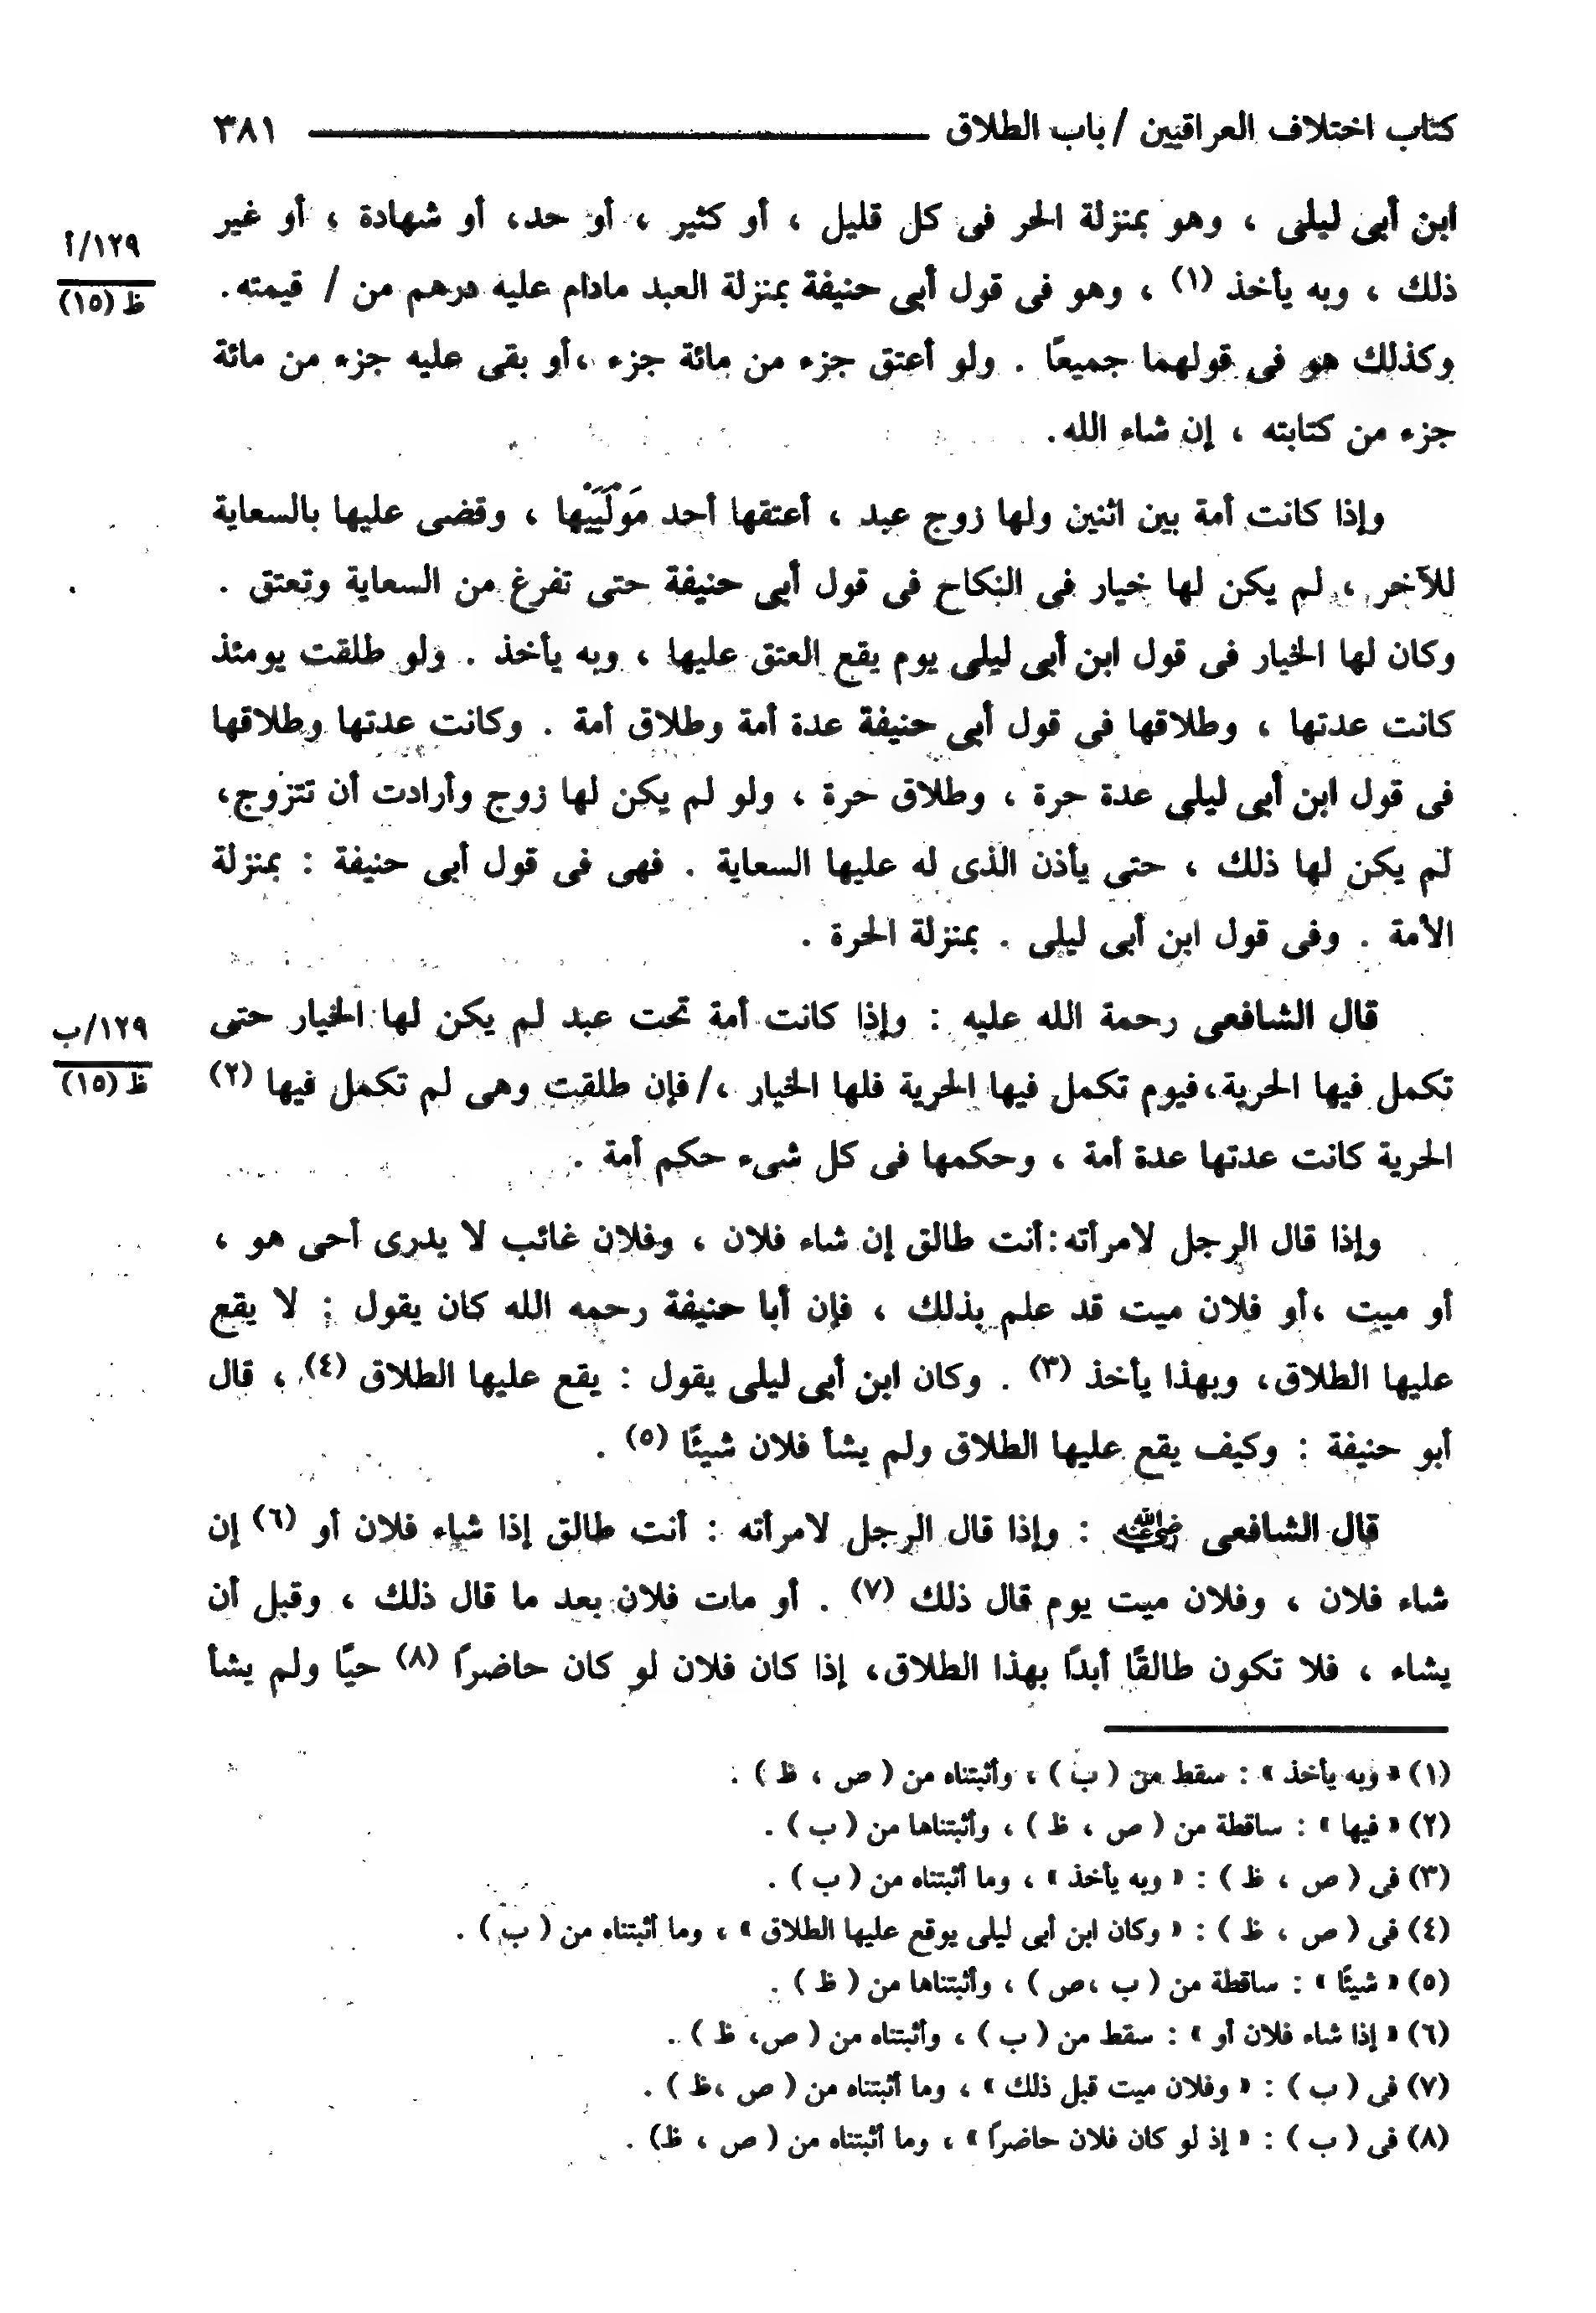 كتاب اختلاف العراقيين / باب الطلاق ٣٨١
ابن أبى ليلى ، وهو بمنزلة الحر فى كل قليل ، أو كثير ، أو حد، أو شهادة ، أو غير
١٢٩/أ
ظ (١٥)
ذلك ، وبه يأخذ (١) ، وهو فى قول أبى حنيفة بمنزلة العبد مادام عليه درهم من / قيمته.
وكذلك هو فى قولهما جميعًا . ولو أعتق جزء من مائة جزء ،أو بقى عليه جزء من مائة
جزء من كتابته ، إن شاء الله.
وإذا كانت أمة بين اثنين ولها زوج عبد ، أعتقها أحد مَوْلَيَيْها ، وقضى عليها بالسعاية
للآخر ، لم يكن لها خيار فى النكاح فى قول أبى حنيفة حتى تفرغ من السعاية وتعتق .
وكان لها الخيار فى قول ابن أبى ليلى يوم يقع العتق عليها ، وبه يأخذ . ولو طلقت يومئذ
كانت عدتها ، وطلاقها فى قول أبى حنيفة عدة أمة وطلاق أمة . وكانت عدتها وطلاقها
فى قول ابن أبى ليلى عدة حرة ، وطلاق حرة ، ولو لم يكن لها زوج وأرادت أن تتزوج،
لم يكن لها ذلك ، حتى يأذن الذى له عليها السعاية . فهى فى قول أبى حنيفة : بمنزلة
الأمة . وفى قول ابن أبى ليلى . بمنزلة الحرة .
قال الشافعى رحمة الله عليه : وإذا كانت أمة تحت عبد لم يكن لها الخيار حتى
١٢٩/ب
ظ (١٥)
تكمل فيها الحرية،فيوم تكمل فيها الحرية فلها الخيار ،/ فإن طلقت وهى لم تكمل فيها (٢)
الحرية كانت عدتها عدة أمة ، وحكمها فى كل شىء حكم أمة .
وإذا قال الرجل لامرأته:أنت طالق إن شاء فلان ، وفلان غائب لا يدرى أحى هو ،
أو ميت ،أو فلان ميت قد علم بذلك ، فإن أبا حنيفة رحمه الله كان يقول : لا يقع
عليها الطلاق، وبهذا يأخذ (٣) . وكان ابن أبى ليلى يقول : يقع عليها الطلاق (٤) ، قال
أبو حنيفة : وكيف يقع عليها الطلاق ولم يشأ فلان شيئًا (٥) .
قال الشافعى رضي الله عنه : وإذا قال الرجل لامرأته : أنت طالق إذا شاء فلان أو (٦) إن
شاء فلان ، وفلان ميت يوم قال ذلك (٧) . أو مات فلان بعد ما قال ذلك ، وقبل أن
يشاء ، فلا تكون طالقًا أبدًا بهذا الطلاق، إذا كان فلان لو كان حاضرًا (٨) حيًا ولم يشأ
(١) « وبه يأخذ » : سقط من ( ب ) ، وأثبتناه من ( ص ، ظ ) .
(٢) « فيها » : ساقطة من ( ص ، ظ ) ، وأثبتناها من ( ب ) .
(٣) فى ( ص ، ظ ) : « وبه يأخذ » ، وما أثبتناه من ( ب ) .
(٤) فى ( ص ، ظ ) : « وكان ابن أبى ليلى يوقع عليها الطلاق » ، وما أثبتناه من ( ب ) .
(٥) « شيئًا » : ساقطة من ( ب ،ص ) ، وأثبتناها من ( ظ ) .
(٦) « إذا شاء فلان أو » : سقط من ( ب ) ، وأثبتناه من ( ص، ظ ) .
(٧) فى ( ب ) : « وفلان ميت قبل ذلك » ، وما أثبتناه من ( ص ،ظ ) .
(٨) فى ( ب ) : « إذ لو كان فلان حاضرًا » ، وما أثبتناه من ( ص ، ظ) .